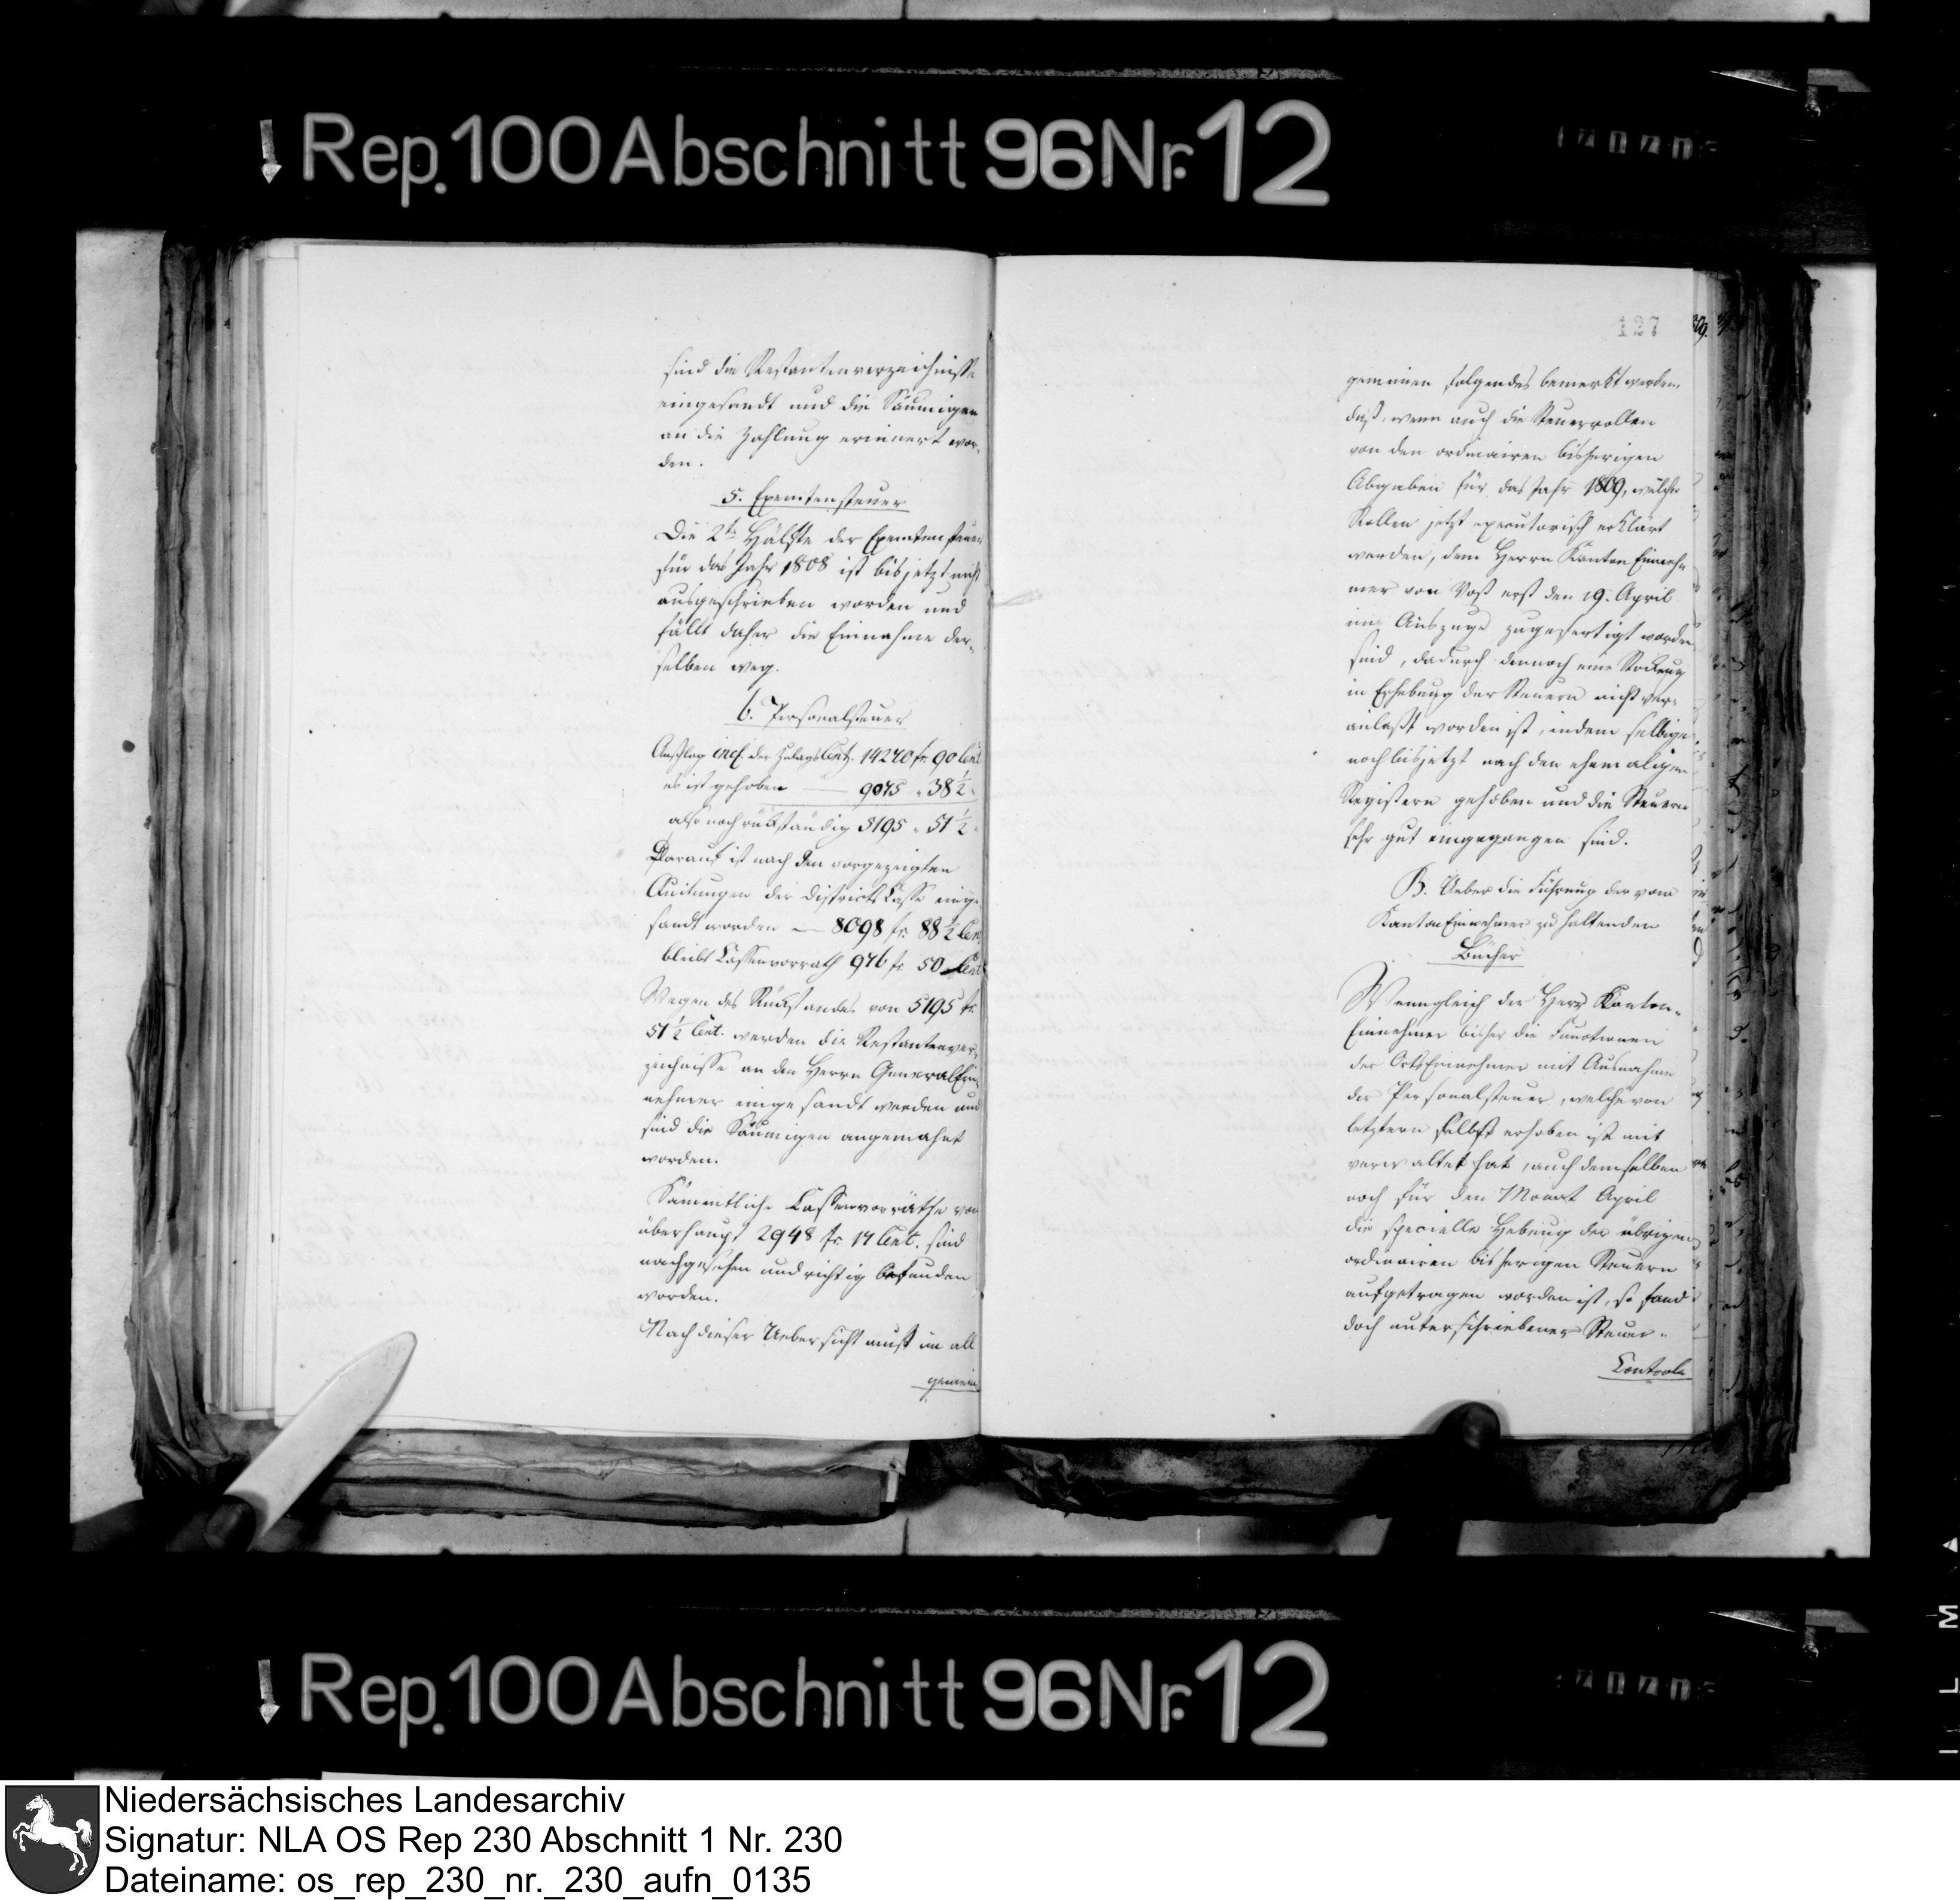 Rep. 100 Abschnitt 96 Nr. 12
sind die Restantenverzeichnisse
eingesandt und die Säumigen
an die Zahlung erinnert wor-
den.
5. Exemtensteuer
Die 2te Hälfte der Exemtensteuer
für das Jahr 1808 ist bis jetzt nicht
ausgeschrieben worden und
fällt daher die Einnahme der-
selben weg.
6. Personalsteuer
Anschlag incl. der ZulagsCent. 14270 fr. 90 Cent
es ist gehoben — 9075 " 38 1/2 "
also noch rückständig 5195 " 51 1/2 "
Darauf ist nach den vorgezeigten
Quitungen der Districts Casse einge-
sandt worden — 8098 fr. 88 1/2 Cent
bleibt Cassenvorrath 976 fr. 50 Cent
Wegen des Rückstandes von 5195 fr.
51 1/2 Cent. werden die Restantenver-
zeichnisse an den Herrn GeneralEin-
nehmer eingesandt werden und
sind die Säumigen angemahnt
worden.
Sämmtliche Cassenvorräthe von
überhaupt 2948 fr. 17 Cent. sind
nachgesehen und richtig befunden
worden.
Nach dieser Uebersicht muß im all
gemein
127
gemeinen folgendes bemerkt werden,
daß, wenn auch die Steuerrollen
von den ordinairen bisherigen
Abgaben für das Jahr 1809, welche
Rollen jetzt executorisch erklärt
werden, dem Herrn Kanton Einneh-
mer von Voß erst den 19. April
im Auszuge zugefertigt worden
sind, dadurch dennoch eine Stockung
in Erhebung der Steuern nicht ver-
anlaßt worden ist, indem selbige
noch bis jetzt nach den ehemaligen
Registern gehoben und die Steuern
sehr gut eingegangen sind.
B. Ueber die Führung der vom
Kanton Einnehmer zu haltenden
Bücher
Wenngleich der Herr Kanton-
Einnehmer bisher die Functionen
der OrtsEinnehmer mit Ausnahme
der Personalsteuer, welche von
letztern selbst erhoben ist mit
verwaltet hat, auch demselben
noch für den Monat April
die specielle Hebung der übrigen
ordinairen bisherigen Steuern
aufgetragen worden ist, so fand
doch unterschriebener Steuer-
Controle
Rep. 100 Abschnitt 96 Nr. 12
Niedersächsisches Landesarchiv
Signatur: NLA OS Rep 230 Abschnitt 1 Nr. 230
Dateiname: os_rep_230_nr._230_aufn_0135